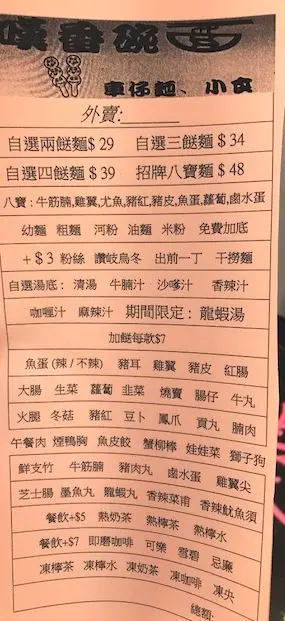 嘆番碗
車仔麵、小食
外賣:
自選兩餸麵$ 29 自選三餸麵 $ 34
自選四餸麵$ 39 招牌八寶麵 $ 48
八寶:牛筋腩,雞翼,尤魚,豬紅,豬皮,魚蛋,蘿蔔,鹵水蛋
幼麵 粗麵 河粉 油麵 米粉 免費加底
+$3 粉絲 讚岐烏冬 出前一丁 干撈麵
自選湯底: 清湯 牛腩汁 沙嗲汁 香辣汁
咖喱汁 麻辣汁 期間限定: 龍蝦湯
加餸每款$7
魚蛋(辣/不辣) 豬耳 雞翼 豬皮 紅腸
大腸 生菜 蘿蔔 韭菜 燒賣 腸仔 牛丸
火腿 冬菇 豬紅 豆卜 鳳爪 貢丸 腩肉
午餐肉 煙鴨胸 魚皮餃 蟹柳棒 娃娃菜 獅子狗
鮮支竹 牛筋腩 豬肉丸 鹵水蛋 雞翼尖
芝士腸 墨魚丸 龍蝦丸 香辣菜甫 香辣魷魚須
餐飲+$5 熱奶茶 熱檸茶 熱檸水
餐飲+$7 即磨咖啡 可樂 雪碧 忌廉
凍檸茶 凍檸水 凍奶茶 凍咖啡 凍央
總額: